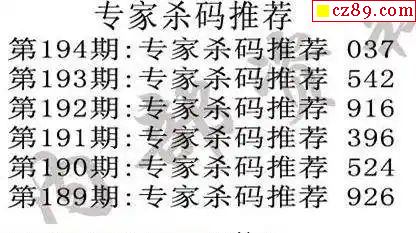 专家杀码推荐
cz89.com
第194期:专家杀码推荐 037
第193期:专家杀码推荐 542
第192期:专家杀码推荐 916
第191期:专家杀码推荐 396
第190期:专家杀码推荐 524
第189期:专家杀码推荐 926